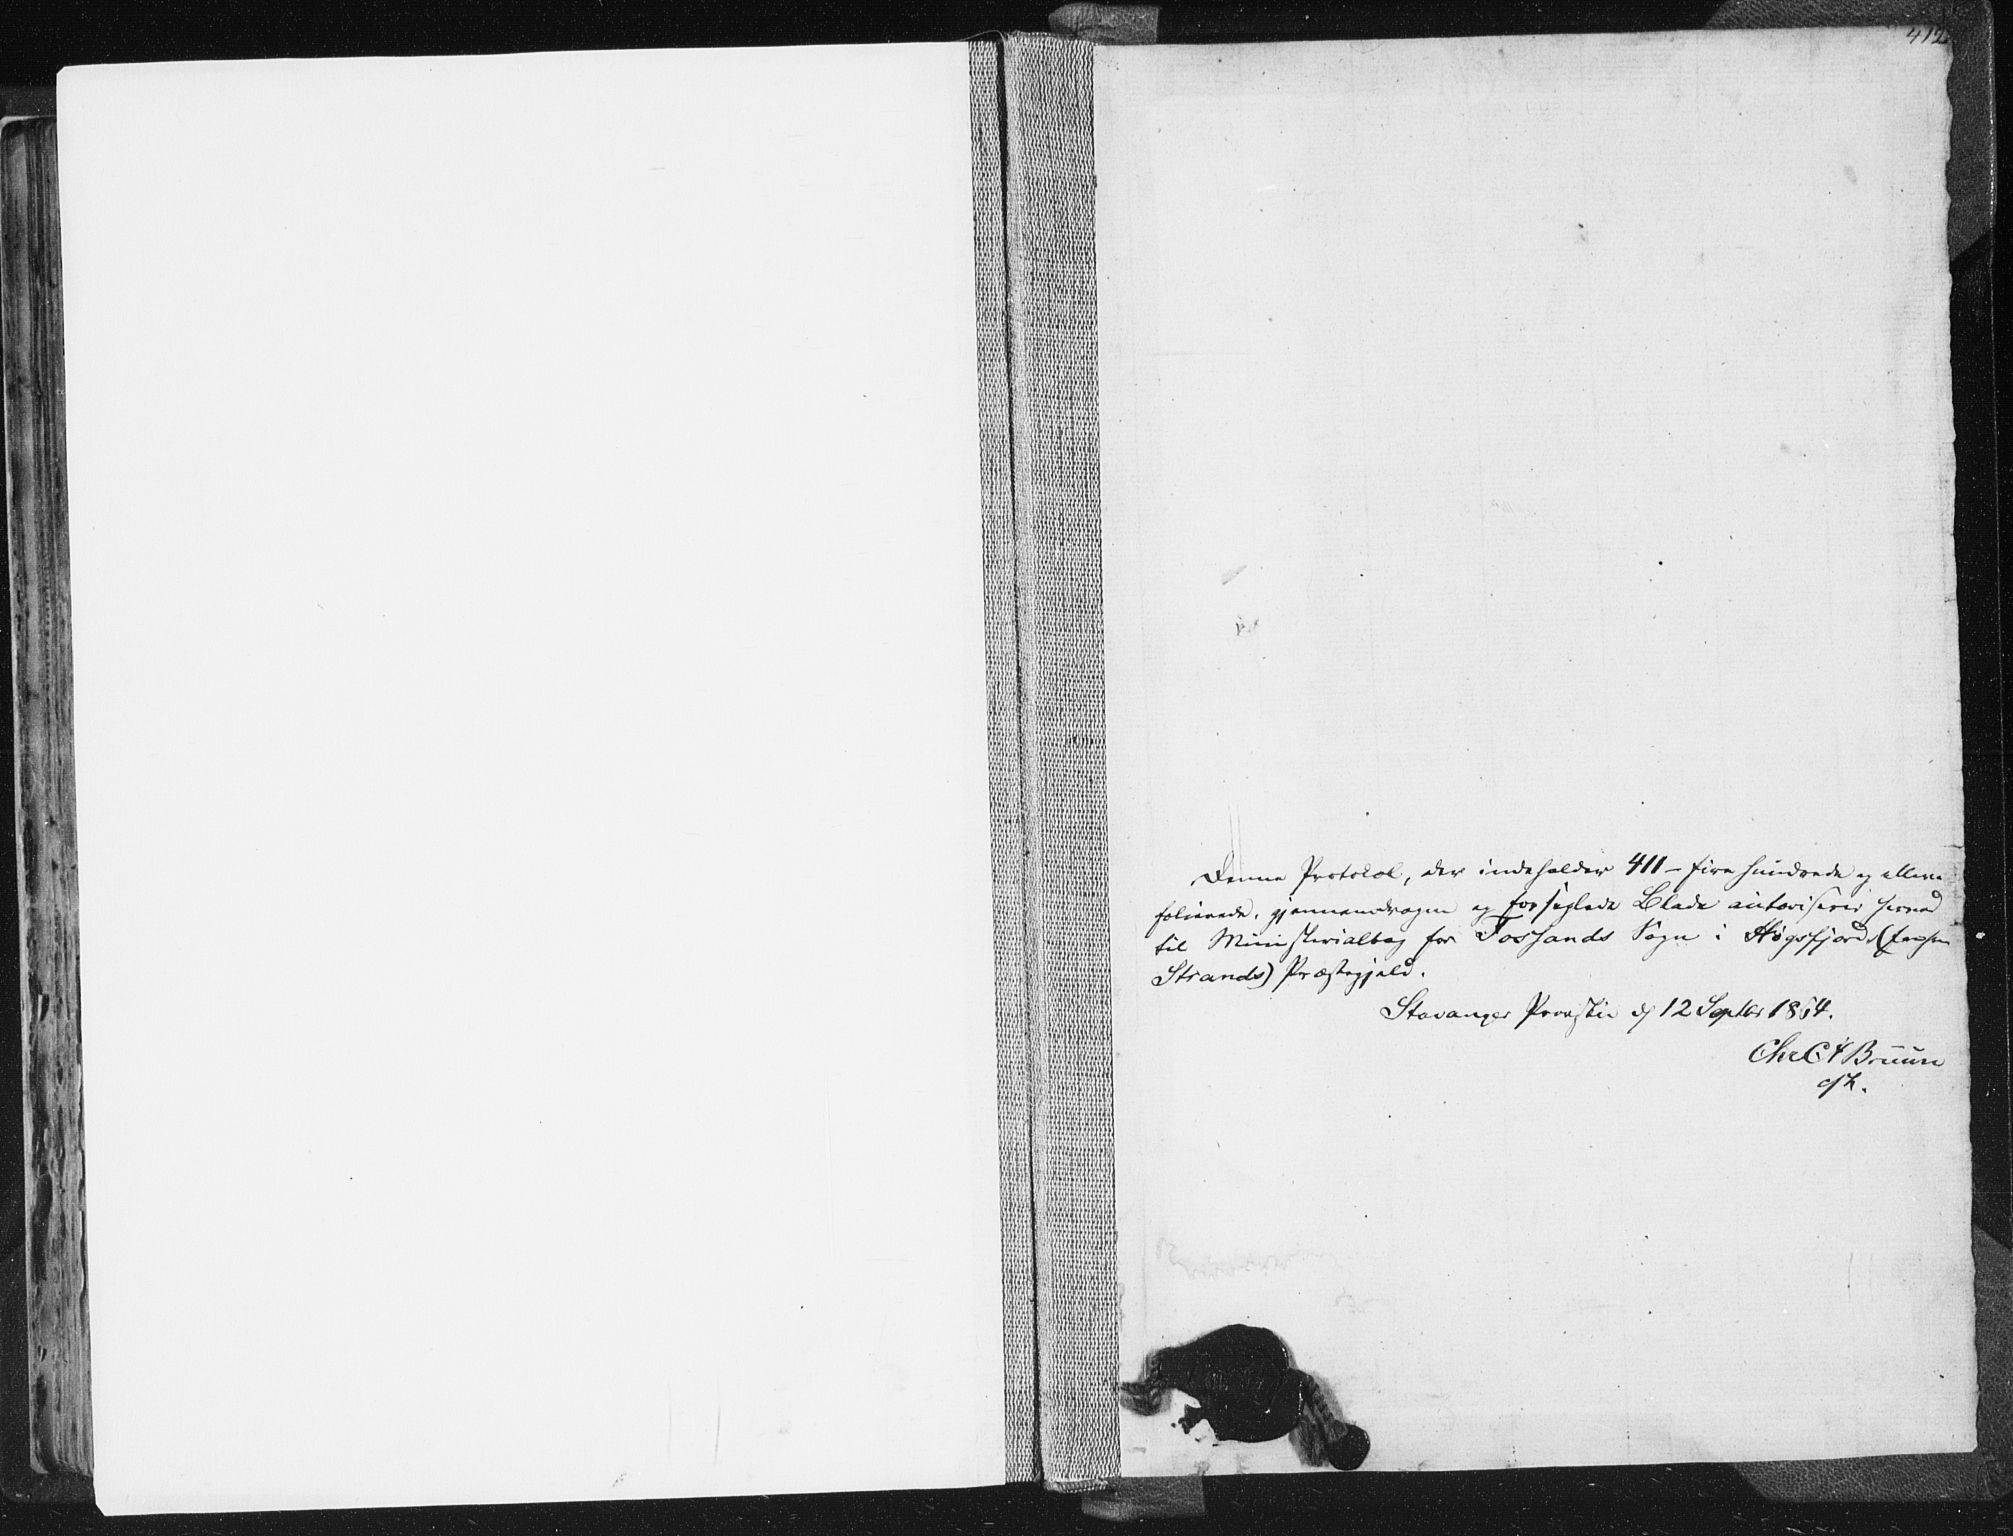 412
Denne Protokol, der indeholder 411 - fire hundrede og elleve
folierede, gjennemdragne og forseglede Blade autoriseres herved
til Ministerialbog for Fossands Sogn i Høgsfjords (
Strands) Præstegjeld.
Stavanger Provstie d 12 Septbr 1854.
Chr Bruun